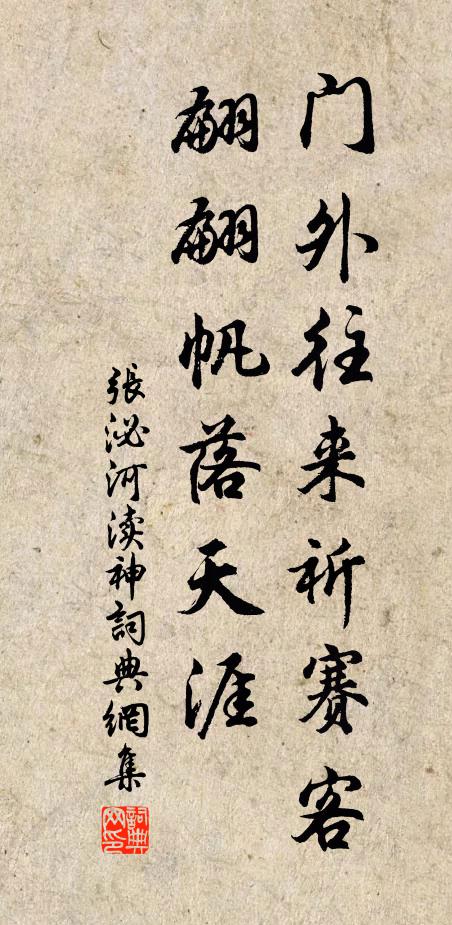 门外往来祈赛客
翩翩帆落天涯
張泌河渎神詞典網集
詞典网印